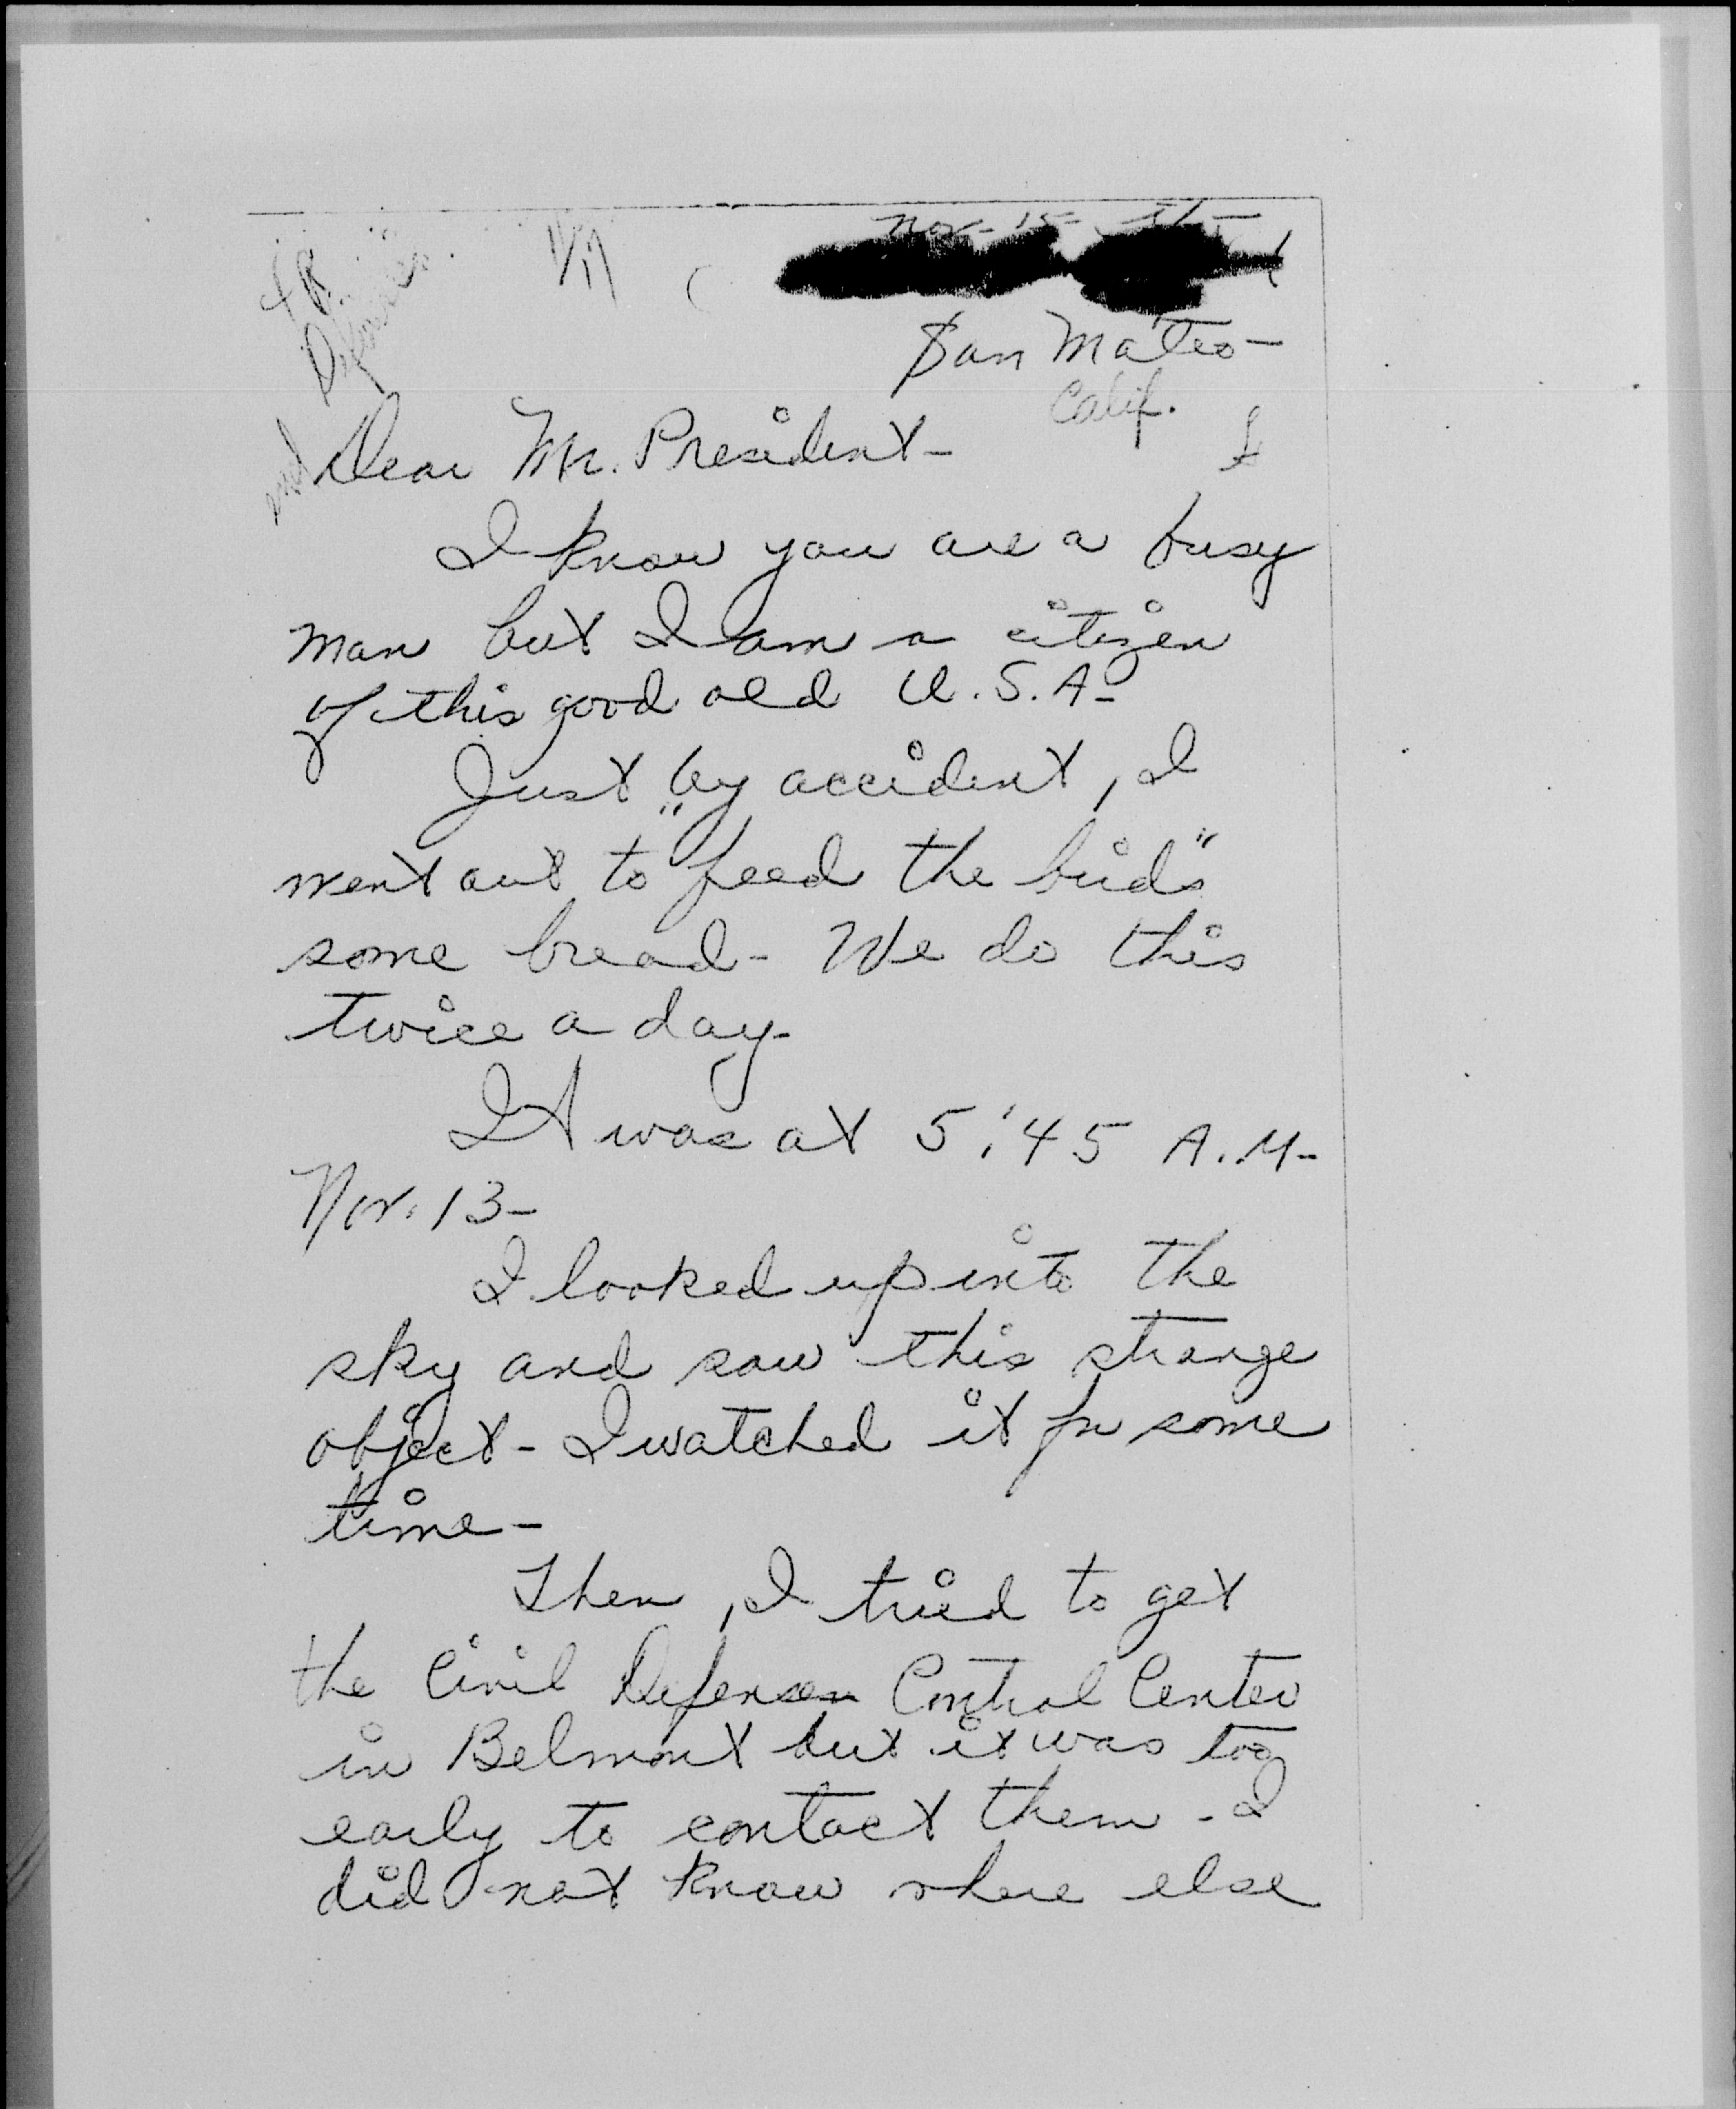 Nov-15-th-
11/17
San Mateo-
Calif.
Dear Mr. President-
I know you are a busy
man but I am a citizen
of this good old U.S.A-
Just by accident, I
went out to "feed the birds"
some bread- We do this
twice a day-
It was at 5:45 A.M-
Nov. 13-
I looked up into the
sky and saw this strange
object- I watched it for some
time-
Then, I tried to get
the Civil Defense Control Center
in Belmont but it was too
early to contact them- I
did not know where else